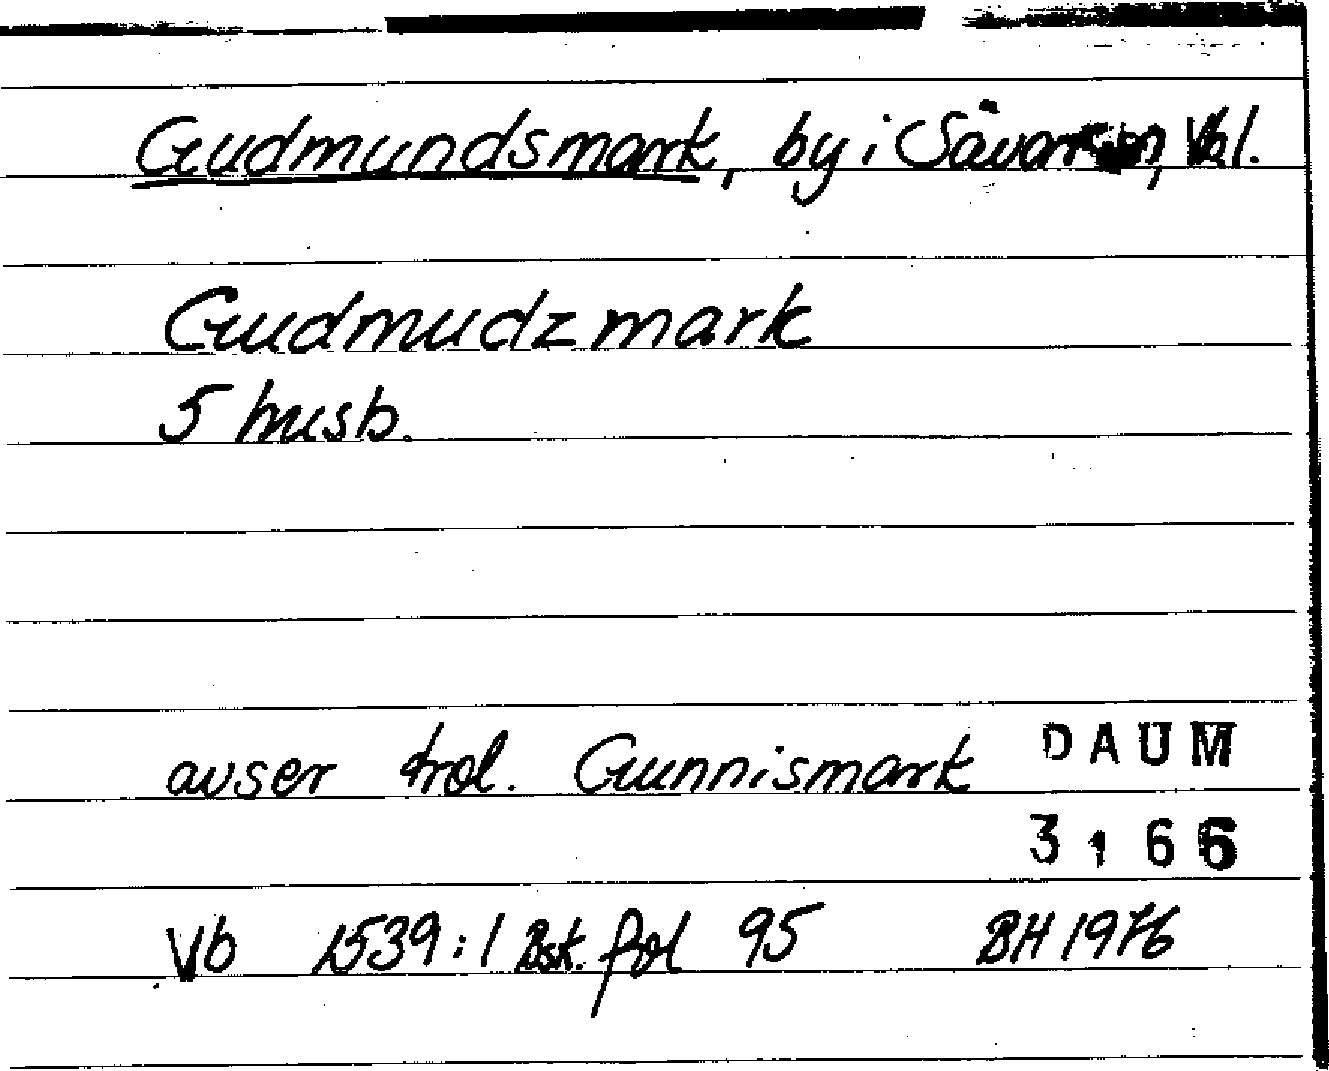 Gudmundsmark, by i Sävar sn, Vbl.
Gudmudzmark
5 husb.
avser trol. Gunnismark
DAUM
3166
Vb 1539:1 Bsk. fol 95 BH 1976